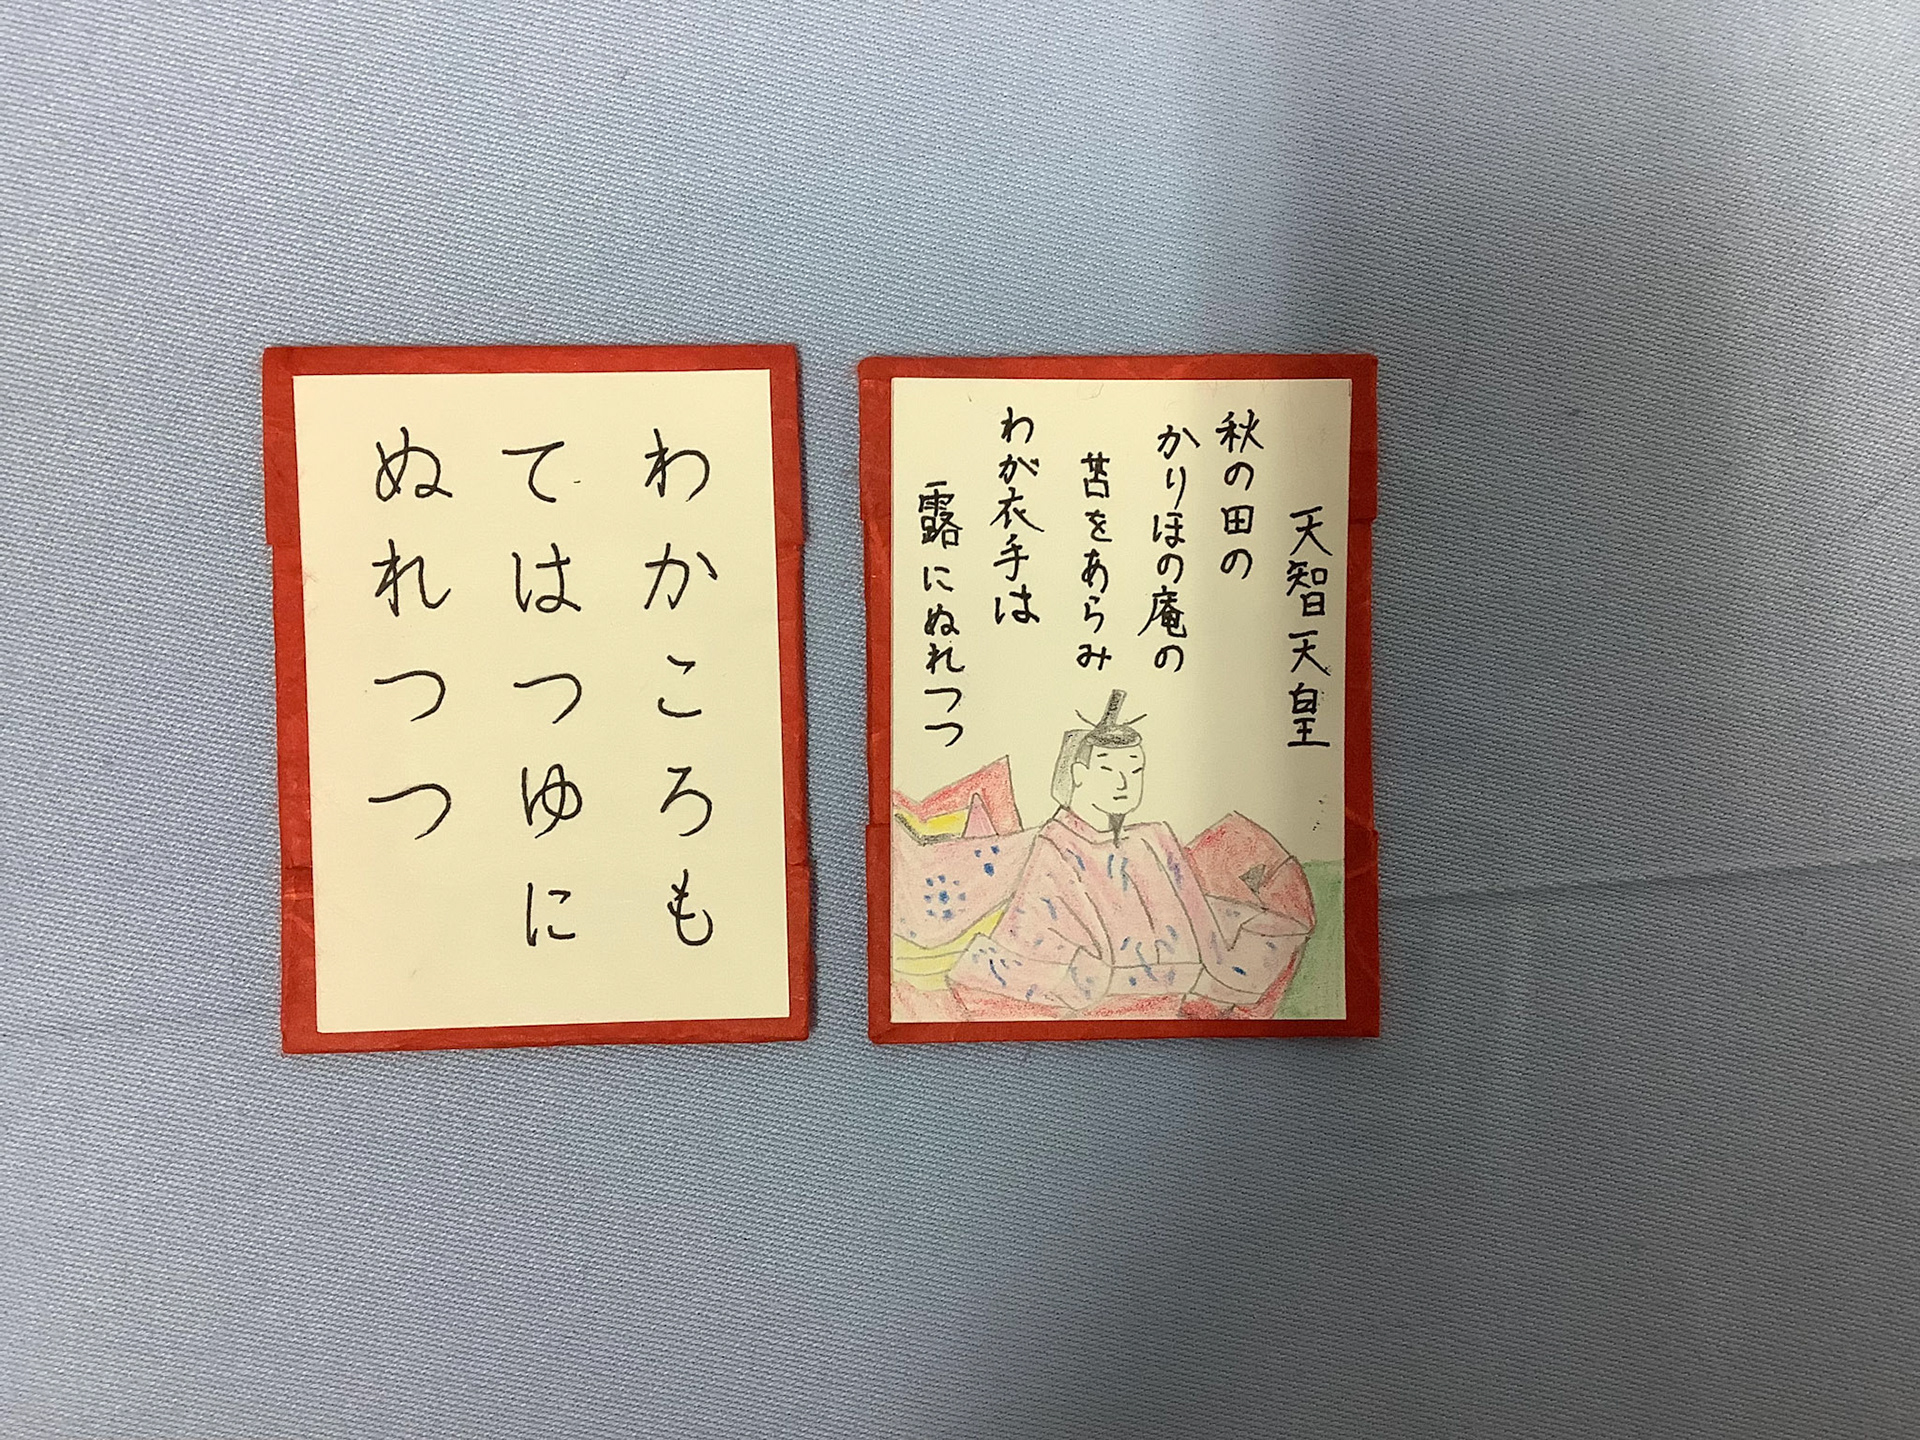 わかころも
てはつゆに
ぬれつつ
天智天皇
秋の田の
かりほの庵の
苫をあらみ
わが衣手は
露にぬれつつ